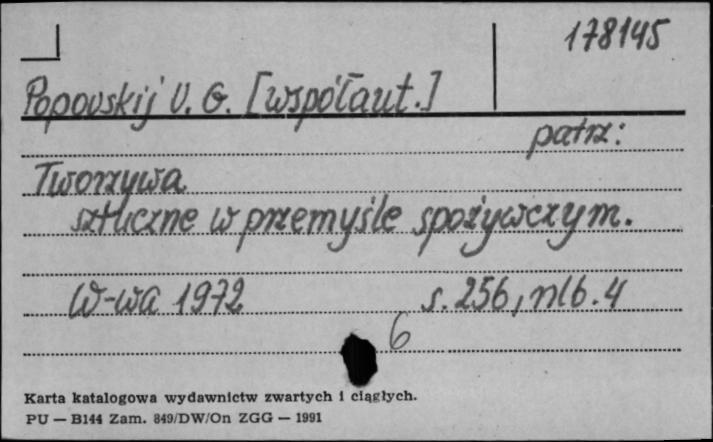 178145
Popovskij V. G. [współaut.]
patrz:
Tworzywa
sztuczne w przemyśle spożywczym.
W-wa 1972 s. 256, nlb. 4
6
Karta katalogowa wydawnictw zwartych i ciągłych.
PU — B144 Zam. 849/DW/On ZGG — 1991